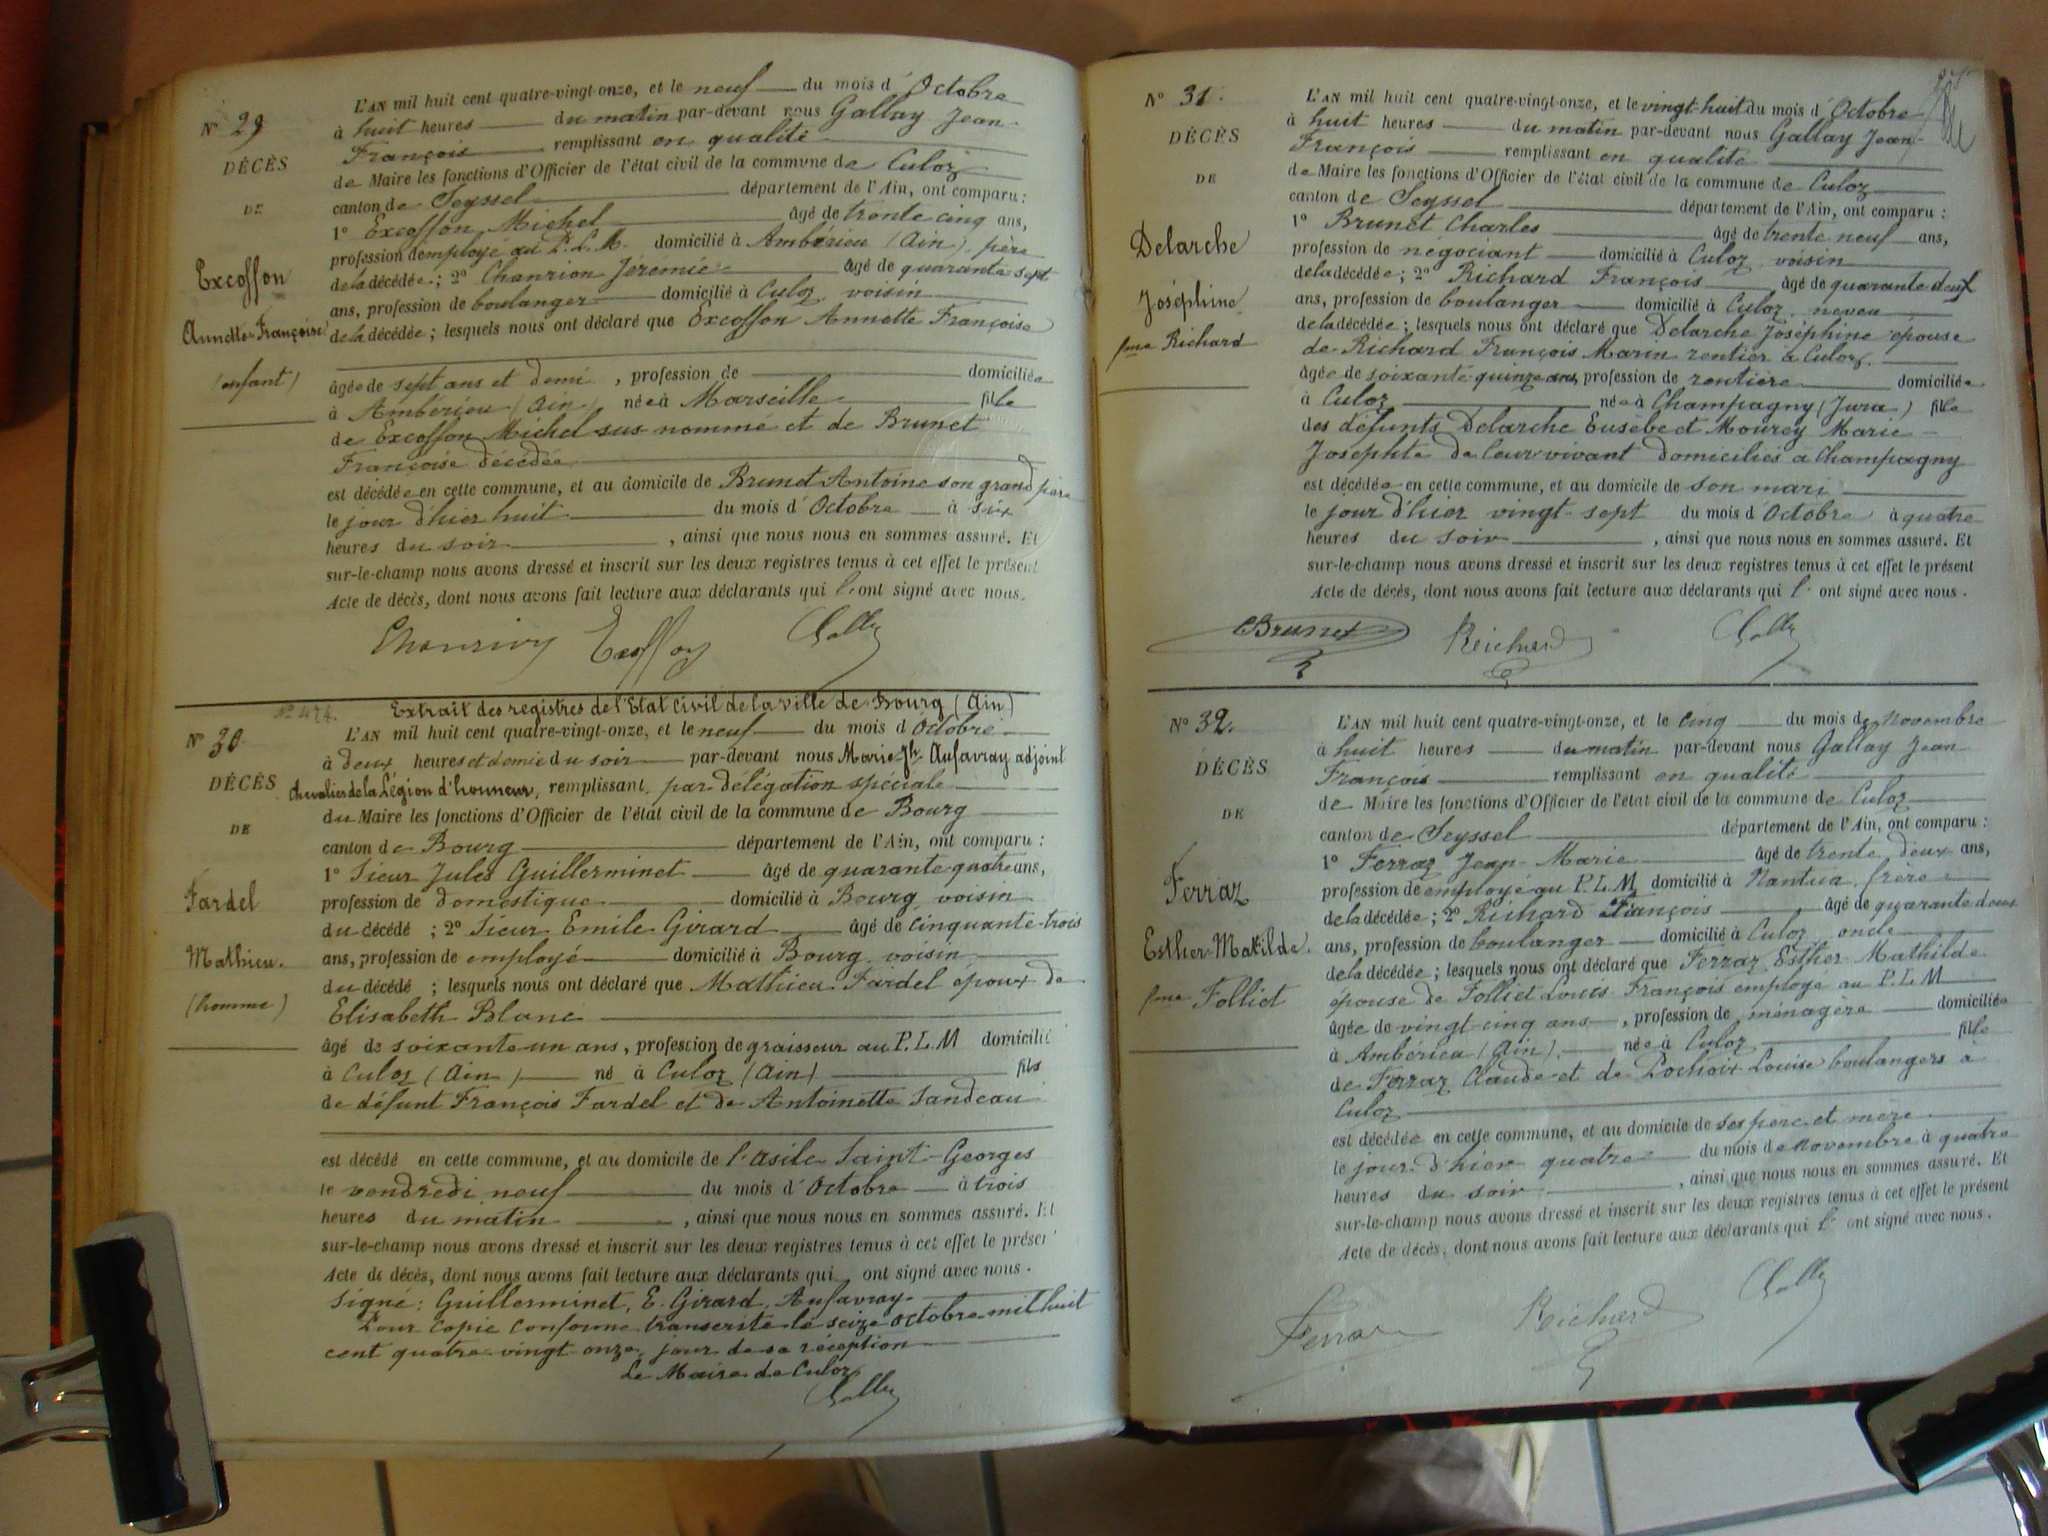 N° 29
DÉCÈS
DE
Excoffon
Annette Françoise
(enfant)
L'AN mil huit cent quatre-vingt-onze, et le neuf du mois d'Octobre
à huit heures du matin par-devant nous Gallay Jean-
François remplissant en qualité
de Maire les fonctions d'Officier de l'état civil de la commune de Culoz
canton de Seyssel département de l'Ain, ont comparu :
1° Excoffon Michel âgé de trente cinq ans,
profession d'employé au P.L.M. domicilié à Ambérieu (Ain) père
de la décédée ; 2° Chanrion Jérémie âgé de quarante sept
ans, profession de boulanger domicilié à Culoz voisin
de la décédée ; lesquels nous ont déclaré que Excoffon Annette Françoise
âgée de sept ans et demi, profession de domiciliée
à Ambérieu (Ain) née à Marseille fille
de Excoffon Michel sus nommé et de Brunet
Françoise décédée
est décédée en cette commune, et au domicile de Brunet Antoine son grand père
le jour d'hier huit du mois d'Octobre à six
heures du soir, ainsi que nous nous en sommes assuré. Et
sur-le-champ nous avons dressé et inscrit sur les deux registres tenus à cet effet le présent
Acte de décès, dont nous avons fait lecture aux déclarants qui l'ont signé avec nous.
Chanrion Excoffon Gallay
N° 474. Extrait des registres de l'Etat civil de la ville de Bourg (Ain)
N° 30
DÉCÈS
DE
Fardel
Mathieu.
(homme)
L'AN mil huit cent quatre-vingt-onze, et le neuf du mois d'Octobre
à deux heures et demie du soir par-devant nous Marie Jh Aufavray adjoint
chevalier de la Légion d'honneur, remplissant par délégation spéciale
du Maire les fonctions d'Officier de l'état civil de la commune de Bourg
canton de Bourg département de l'Ain, ont comparu :
1° Sieur Jules Guillerminet âgé de quarante-quatre ans,
profession de domestique domicilié à Bourg voisin
du décédé ; 2° Sieur Emile Girard âgé de cinquante-trois
ans, profession de employé domicilié à Bourg voisin
du décédé ; lesquels nous ont déclaré que Mathieu Fardel époux de
Elisabeth Blanc
âgé de soixante un ans, profession de graisseur au P.L.M domicilié
à Culoz (Ain) né à Culoz (Ain) fils
de défunt François Fardel et de Antoinette Sandeau
est décédé en cette commune, et au domicile de l'asile Saint-Georges
le vendredi neuf du mois d'Octobre à trois
heures du matin, ainsi que nous nous en sommes assuré. Et
sur-le-champ nous avons dressé et inscrit sur les deux registres tenus à cet effet le présent
Acte de décès, dont nous avons fait lecture aux déclarants qui ont signé avec nous.
Signé : Guillerminet, E. Girard, Aufavray
Pour copie conforme transcrite le seize Octobre mil huit
cent quatre-vingt onze, jour de sa réception
Le Maire de Culoz
Gallay
N° 31.
DÉCÈS
DE
Delarche
Joséphine
fme Richard
L'AN mil huit cent quatre-vingt-onze, et le vingt-huit du mois d'Octobre
à huit heures du matin par-devant nous Gallay Jean-
François remplissant en qualité
de Maire les fonctions d'Officier de l'état civil de la commune de Culoz
canton de Seyssel département de l'Ain, ont comparu :
1° Brunet Charles âgé de trente neuf ans,
profession de négociant domicilié à Culoz voisin
de la décédée ; 2° Richard François âgé de quarante deux
ans, profession de boulanger domicilié à Culoz neveu
de la décédée ; lesquels nous ont déclaré que Delarche Joséphine épouse
de Richard François Marin rentier à Culoz.
âgée de soixante quinze ans, profession de rentière domiciliée
à Culoz née à Champagny (Jura) fille
des défunts Delarche Eusèbe et Mourey Marie
Josephte de leur vivant domiciliés à Champagny
est décédée en cette commune, et au domicile de son mari
le jour d'hier vingt-sept du mois d'Octobre à quatre
heures du soir, ainsi que nous nous en sommes assuré. Et
sur-le-champ nous avons dressé et inscrit sur les deux registres tenus à cet effet le présent
Acte de décès, dont nous avons fait lecture aux déclarants qui l'ont signé avec nous.
CBrunet Reichard Gallay
N° 32.
DÉCÈS
DE
Ferraz
Esther-Matilde.
fme Folliet
L'AN mil huit cent quatre-vingt-onze, et le cinq du mois de Novembre
à huit heures du matin par-devant nous Gallay Jean
François remplissant en qualité
de Maire les fonctions d'Officier de l'état civil de la commune de Culoz
canton de Seyssel département de l'Ain, ont comparu :
1° Ferraz Jean-Marie âgé de trente deux ans,
profession de employé au P.L.M domicilié à Nantua frère
de la décédée ; 2° Richard François âgé de quarante deux
ans, profession de boulanger domicilié à Culoz oncle
de la décédée ; lesquels nous ont déclaré que Ferraz Esther Mathilde
épouse de Folliet Louis François employé au P.L.M
âgée de vingt-cinq ans, profession de ménagère domiciliée
à Ambérieu (Ain) née à Culoz fille
de Ferraz Claude et de Pochoix Louise boulangers à
Culoz
est décédée en cette commune, et au domicile de ses père et mère
le jour d'hier quatre du mois de novembre à quatre
heures du soir, ainsi que nous nous en sommes assuré. Et
sur-le-champ nous avons dressé et inscrit sur les deux registres tenus à cet effet le présent
Acte de décès, dont nous avons fait lecture aux déclarants qui l'ont signé avec nous.
Ferraz Reichard Gallay